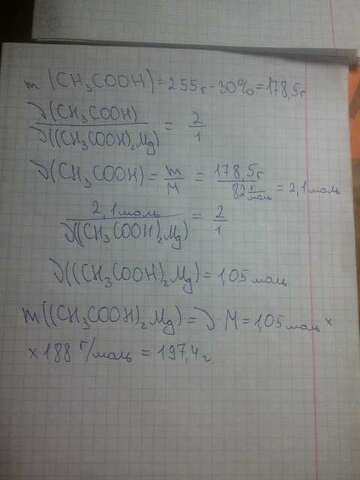 m (CH₃COOH) = 255г - 30% = 178,5г
ν(CH₃COOH) / ν((CH₃COOH)₂Mg) = 2/1
ν(CH₃COOH) = m/M = 178,5г / 82 г/моль = 2,1 моль
2,1 моль / ν((CH₃COOH)₂Mg) = 2/1
ν((CH₃COOH)₂Mg) = 1,05 моль
m((CH₃COOH)₂Mg) = ν M = 1,05 моль ×
× 188 г/моль = 197,4 г